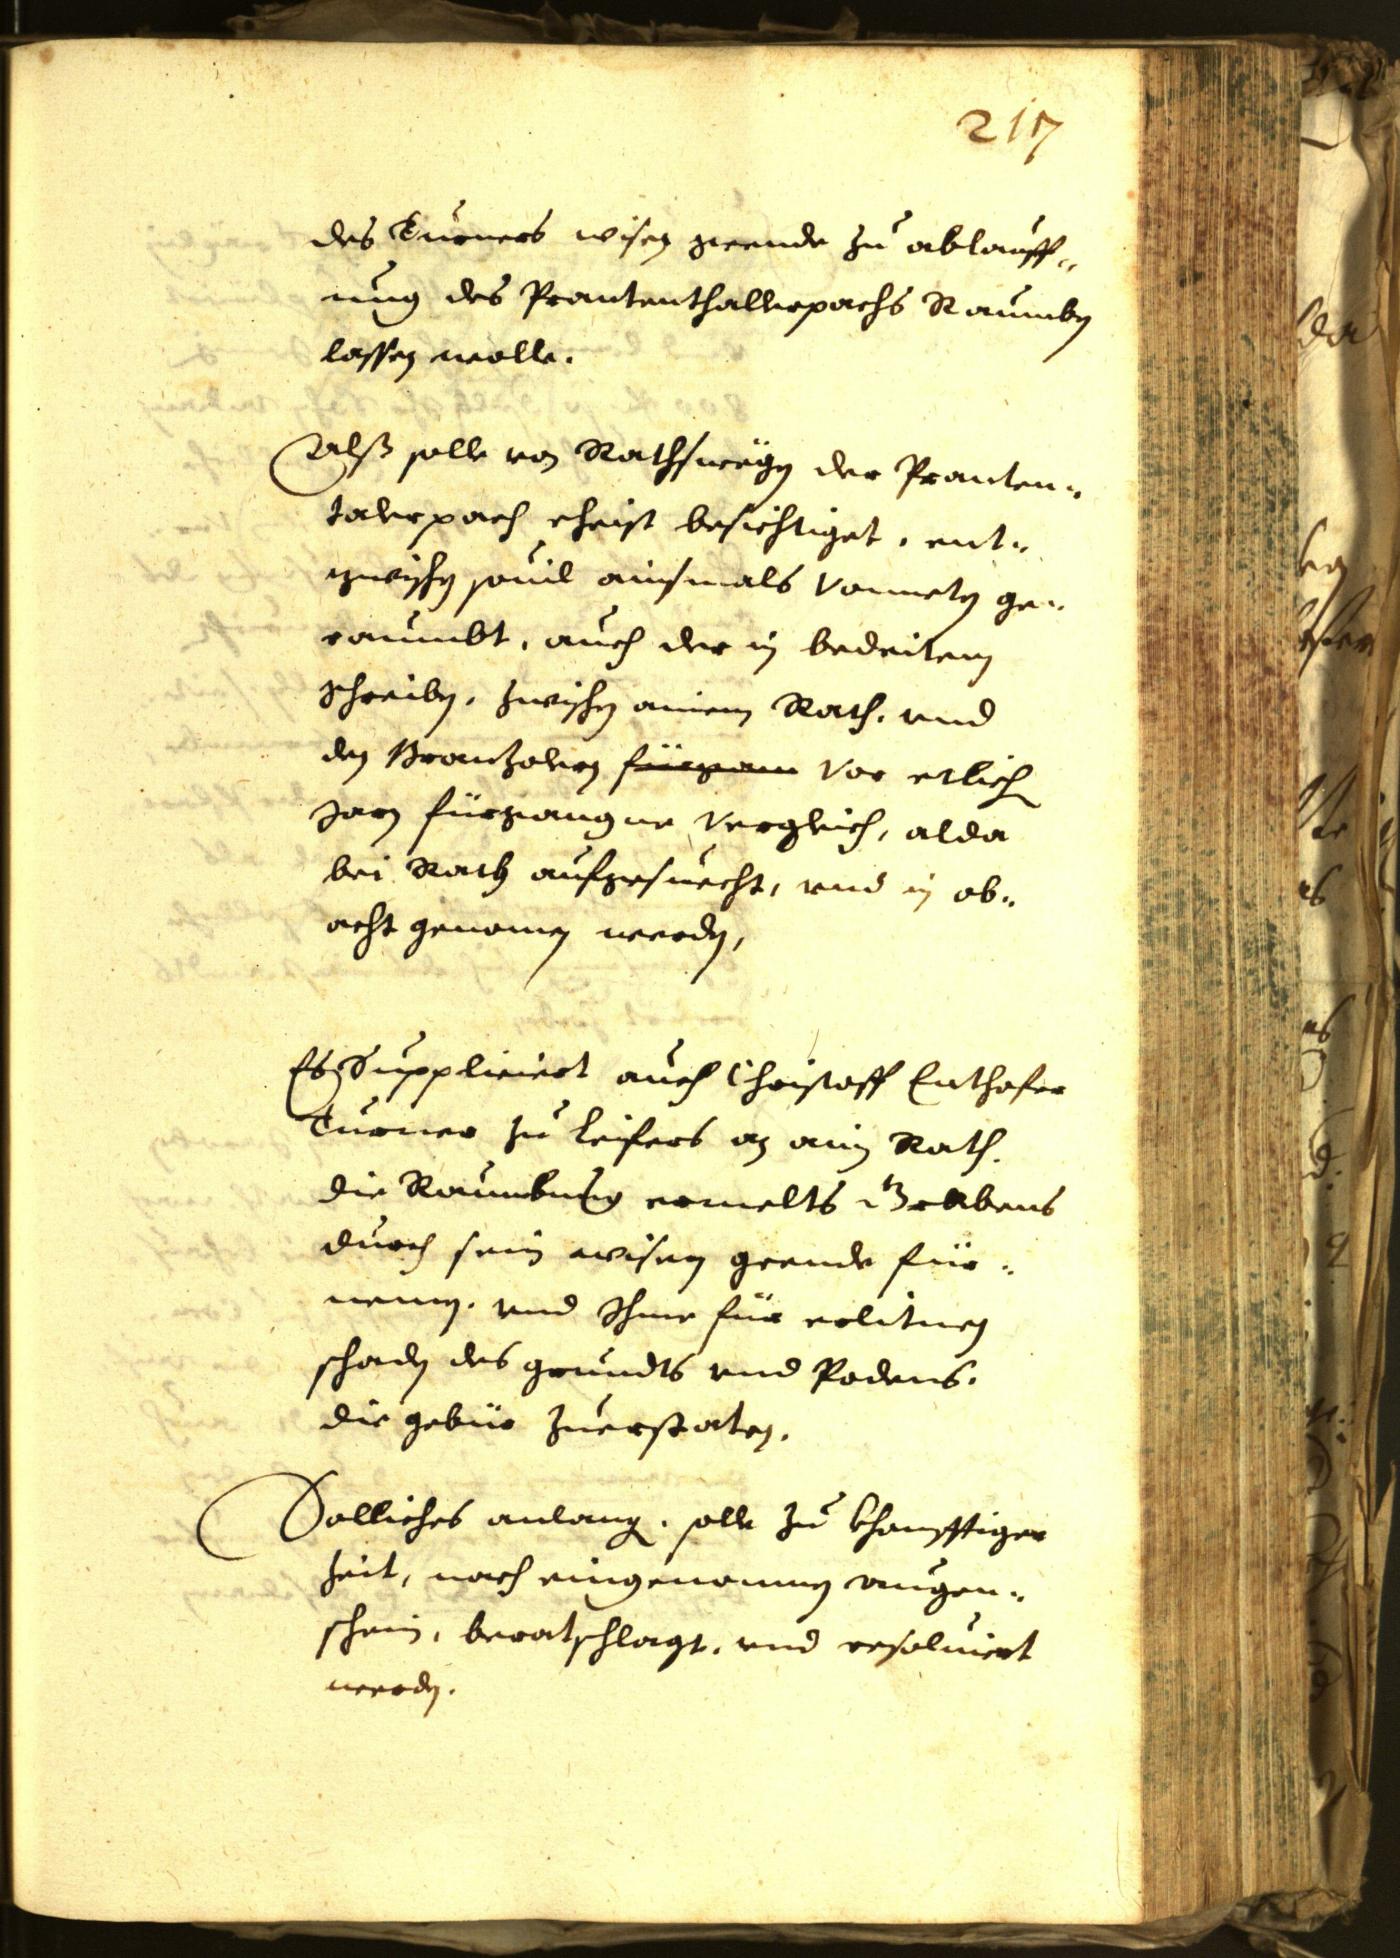 217
des Turners wisen geende zu ablauff„
ung des Prantenthallerpachs Raumben
lassen welle.
Alß solle von Rathswegen der Pranten„
talerpach eheist besichtiget, ent„
zwischen souil ainsmals Vonneten ge„
raumbt, auch der in bedeitem
schreiben, zwischen ainem Rath, vnd
den Brantzolern fürgann Vor etlich
Jarn fürgangne Vergleich, alda
bei Rath aufgesuecht, vnd in ob„
acht genomen werden,
Es Suppliciert auch Christoff Enthofer
Turner zu Leifers an ain Rath.
die Raumbung ermelts Grabens
durch sein wisen geende für„
nemen. vnd Ihme für erlitnen
schaden des grundts vnd Podens.
die gebür zuerstaten.
Solliches anlang. solle zu khonfftiger
Zeit, nach eingenomnen augen„
schein, beratschlagt, vnd resoluiert
werden.